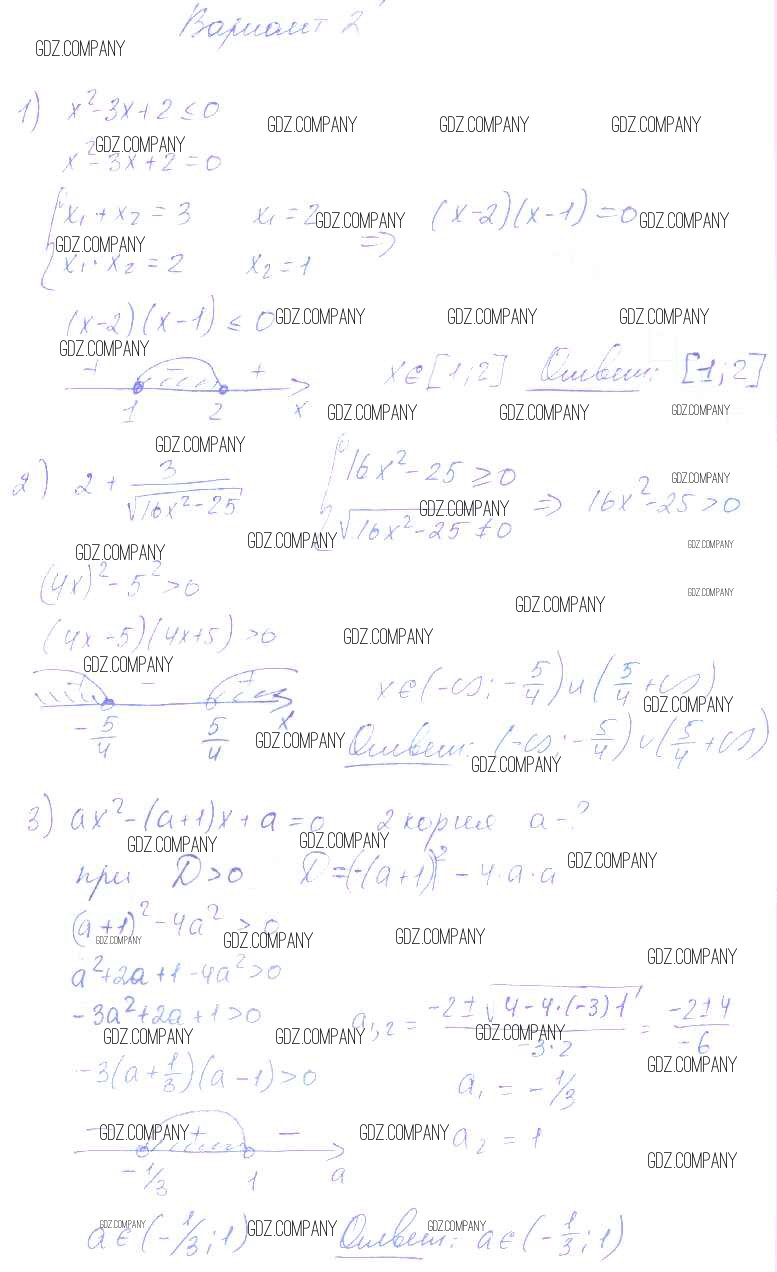 Вариант 2
GDZ.COMPANY
1) x²-3x+2≤0
GDZ.COMPANY GDZ.COMPANY GDZ.COMPANY
GDZ.COMPANY
x²-3x+2=0
x₁+x₂=3 x₁=2 (x-2)(x-1)=0
GDZ.COMPANY GDZ.COMPANY
GDZ.COMPANY ⇒
x₁·x₂=2 x₂=1
(x-2)(x-1)≤0
GDZ.COMPANY GDZ.COMPANY GDZ.COMPANY
GDZ.COMPANY
+ - +
x∈[1;2] Ответ: [1;2]
1 2 x
GDZ.COMPANY GDZ.COMPANY GDZ.COMPANY
GDZ.COMPANY
2) 2+3/√(16x²-25) 16x²-25≥0
GDZ.COMPANY
√(16x²-25)≠0 ⇒ 16x²-25>0
GDZ.COMPANY
GDZ.COMPANY
GDZ.COMPANY GDZ.COMPANY
(4x)²-5²>0
GDZ.COMPANY
GDZ.COMPANY
(4x-5)(4x+5)>0
GDZ.COMPANY
GDZ.COMPANY
+ - +
x∈(-∞;-5/4)∪(5/4+∞)
GDZ.COMPANY
-5/4 5/4 x
GDZ.COMPANY
Ответ: (-∞;-5/4)∪(5/4+∞)
GDZ.COMPANY
3) ax²-(a+1)x+a=0 2 корня a-?
GDZ.COMPANY GDZ.COMPANY
GDZ.COMPANY
при D>0 D=(-(a+1))²-4·a·a
(a+1)²-4a²>0
GDZ.COMPANY GDZ.COMPANY GDZ.COMPANY
GDZ.COMPANY
a²+2a+1-4a²>0
-3a²+2a+1>0 a₁,₂=(-2±√(4-4·(-3)1))/(-3·2)=(-2±4)/(-6)
GDZ.COMPANY GDZ.COMPANY GDZ.COMPANY
GDZ.COMPANY
-3(a+1/3)(a-1)>0 a₁=-1/3
- + -
GDZ.COMPANY GDZ.COMPANY
a₂=1
GDZ.COMPANY
-1/3 1 a
GDZ.COMPANY GDZ.COMPANY GDZ.COMPANY
a∈(-1/3;1) Ответ: a∈(-1/3;1)